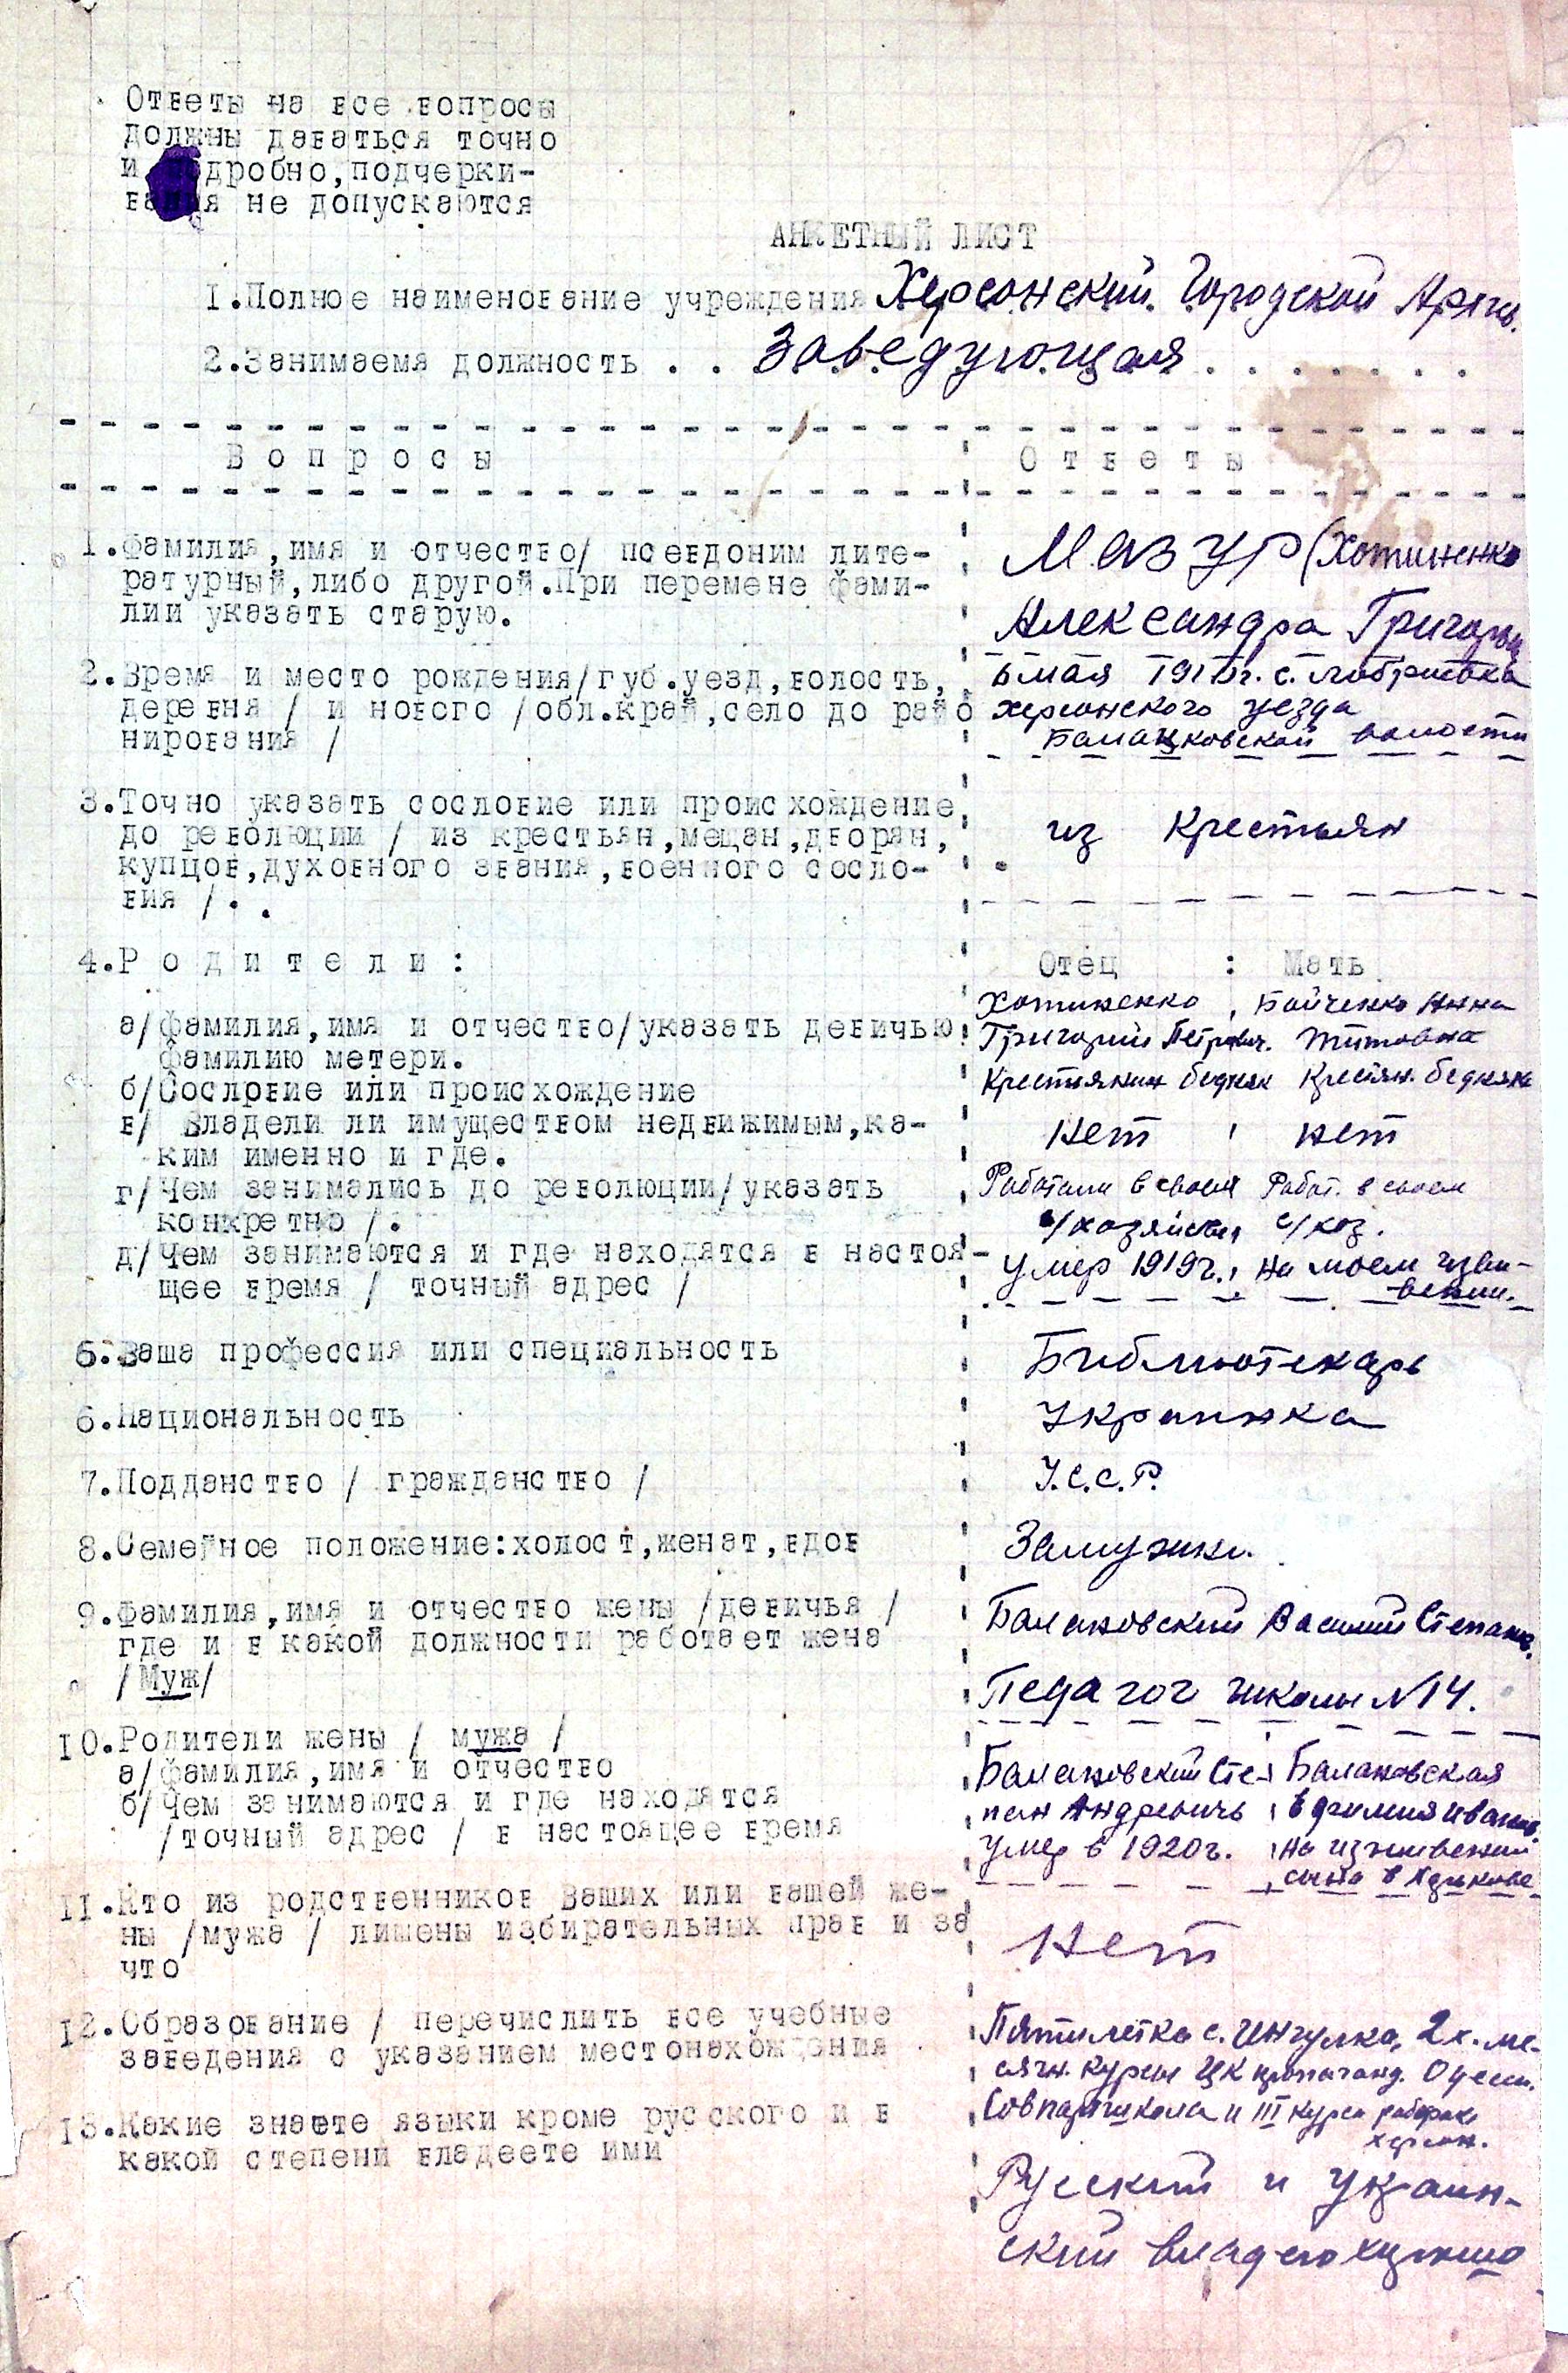 Ответы на все вопросы
должны даваться точно
и подробно, подчерки-
вания не допускаются
АНКЕТНЫЙ ЛИСТ
1.Полное наименование учреждения Херсонский Городской Архив.
2.Занимаема должность . . Заведующая . . . . . . .
Вопросы
Ответы
1.Фамилия,имя и отчество/ псевдоним лите-
ратурный,либо другой.При перемене фами-
лии указать старую.
Мазур (Хотиненко
Александра Григорьев
2.Время и место рождения/губ.уезд,волость,
деревня / и нового /обл.край,село до райо
нирования /
мая г. с.
херсонского уезда
Балацковской волости
3.Точно указать сословие или происхождение
до революции / из крестьян,мещан,дворян,
купцов,духовного звания,военного сосло-
вия /..
из крестьян
4.Родители:
Отец : Мать
а/фамилия,имя и отчество/указать девичью
фамилию метери.
Хотиненко , Бойченко Анна
Григорий Петрович. Титовна
б/Сословие или происхождение
Крестиянин бедняк Крестян. беднячк
в/ Владели ли имуществом недвижимым,ка-
ким именно и где.
Нет нет
г/Чем занимались до революции/указать
конкретно /.
Работали в своем Работ. в своем
с/хозяйстве с/хоз.
д/Чем занимаются и где находятся в настоя-
щее время / точный адрес /
умер 1919г. на моем ижди-
вении.
5.Ваша профессия или специальность
Библиотекарь
6.Национальность
Украинка
7.Подданство / гражданство /
У.С.С.Р.
8.Семейное положение:холост,женат,вдов
Замужем.
9.Фамилия,имя и отчество жены /девичья /
где и в какой должности работает жена
/Муж/
Балановский Василий Степанов.
Педагог школы №14.
10.Родители жены / мужа /
а/фамилия,имя и отчество
б/Чем занимаются и где находятся
/точный адрес / в настоящее время
Балановский Сте- Балановская
пан Андреевичь Ефимия Иванов.
умер в 1920г. на иждивении
сына в
11.Кто из родственников Ваших или вашей же-
ны /мужа / лишены избирательных прав и за
что
Нет
12.Образование / перечислить все учебные
заведения с указанием местонахождения
Пятилетка с. Ингулка, 2х.ме-
сячн. Курсы ЦК пропаганд. Одесс.
Совпартшкола и III курса рабфак
херсон.
13.Какие знаете языки кроме русского и в
какой степени владеете ими
Русский и Украин-
ский владею хорошо